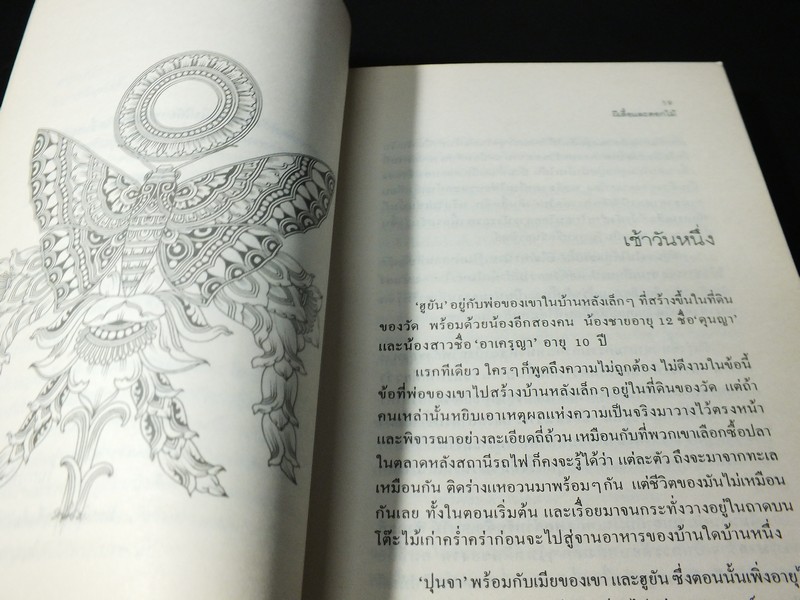 ๑๑
ผีเสื้อและดอกไม้
เช้าวันหนึ่ง
'ฮูยัน' อยู่กับพ่อของเขาในบ้านหลังเล็กๆ ที่สร้างขึ้นในที่ดิน
ของวัด พร้อมด้วยน้องอีกสองคน น้องชายอายุ 12 ชื่อ 'คุนญา'
และน้องสาวชื่อ 'อาเครฺญา' อายุ 10 ปี
แรกทีเดียว ใครๆ ก็พูดถึงความไม่ถูกต้อง ไม่ดีงามในข้อนี้
ข้อที่พ่อของเขาไปสร้างบ้านหลังเล็กๆ อยู่ในที่ดินของวัด แต่ถ้า
คนเหล่านั้นหยิบเอาเหตุผลแห่งความเป็นจริงมาวางไว้ตรงหน้า
และพิจารณาอย่างละเอียดถี่ถ้วน เหมือนกับที่พวกเขาเลือกซื้อปลา
ในตลาดหลังสถานีรถไฟ ก็คงจะรู้ได้ว่า แต่ละตัว ถึงจะมาจากทะเล
เหมือนกัน ติดร่างแหอวนมาพร้อมๆ กัน แต่ชีวิตของมันไม่เหมือน
กันเลย ทั้งในตอนเริ่มต้น และเรื่อยมาจนกระทั่งวางอยู่ในถาดบน
โต๊ะไม้เก่าคร่ำคร่าก่อนจะไปสู่จานอาหารของบ้านใดบ้านหนึ่ง
'ปุนจา' พร้อมกับเมียของเขา และฮูยัน ซึ่งตอนนั้นเพิ่งอายุ